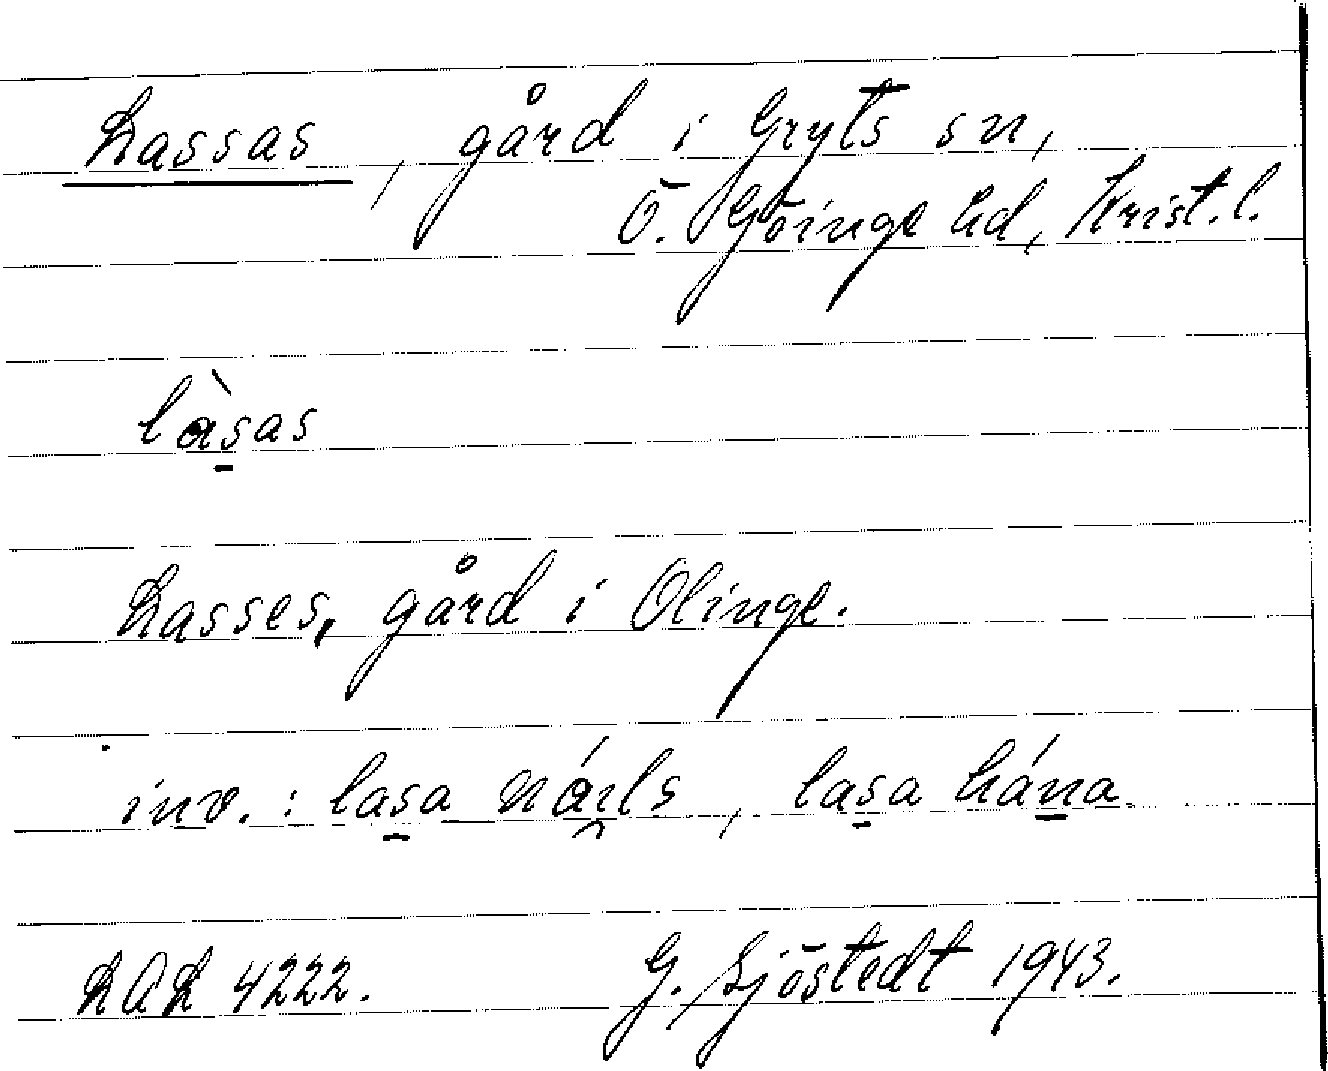 Lassas, gård i Gryts sn,
Ö. Göinge hd, Krist. l.
làs̱as
Lasses, gård i Olinge.
inv.: las̱a nái̯ls, las̱a háṉa
LAL 4222. G. Sjöstedt 1943.